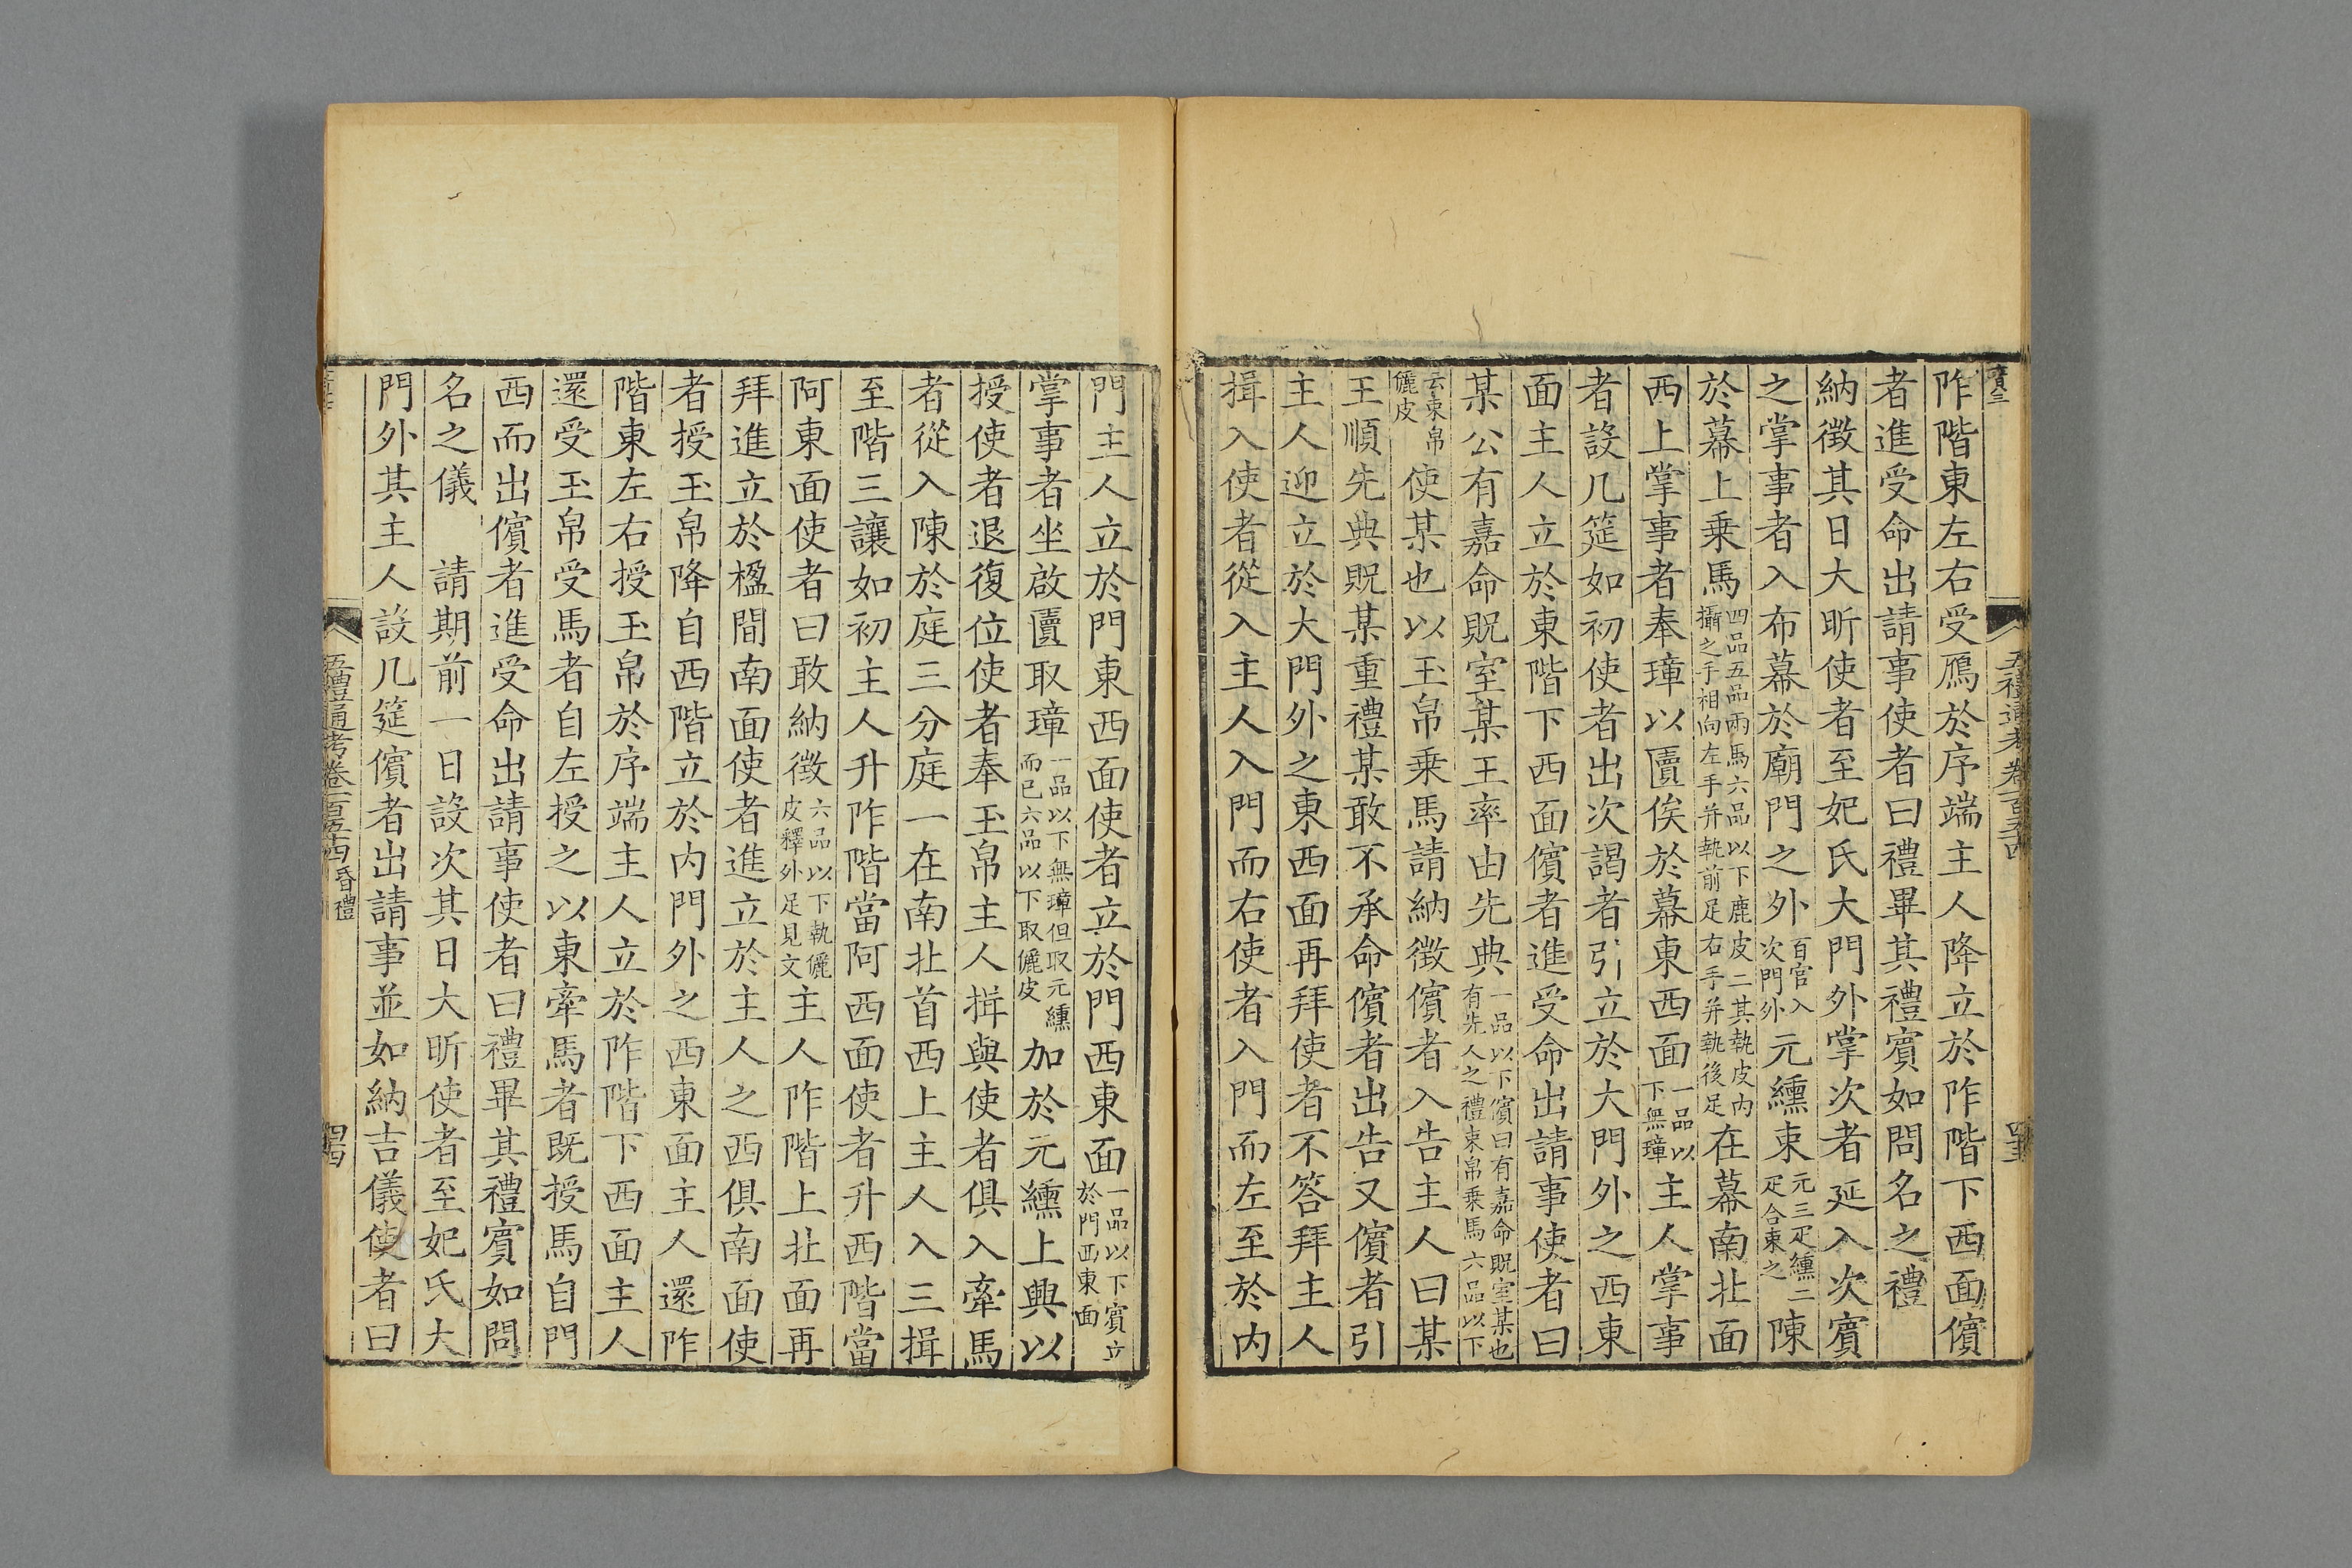 阼階東左右受鴈於序端主人降立於阼階下西面儐
者進受命出請事使者曰禮畢其禮賓如問名之禮
納徴其日大昕使者至妃氏大門外掌次者延入次賓
之掌事者入布幕於廟門之外百官入次門外元纁束元三疋纁二疋合束之陳
於幕上乗馬四品五品兩馬六品以下鹿皮二其執皮內攝之手相向左手并執前足右手并執後足在幕南北面
西上掌事者奉璋以匵俟於幕東西面一品以下無璋主人掌事
者設几筵如初使者出次謁者引立於大門外之西東
面主人立於東階下西面儐者進受命出請事使者曰
某公有嘉命貺室某王率由先典一品以下儐曰有嘉命貺室某也有先人之禮束帛乗馬六品以下
云束帛儷皮使某也以玉帛乗馬請納徴儐者入告主人曰某
王順先典貺某重禮某敢不承命儐者出告又儐者引
主人迎立於大門外之東西面再拜使者不答拜主人
揖入使者從入主人入門而右使者入門而左至於內
門主人立於門東西面使者立於門西東面一品以下賓立於門西東面
掌事者坐啟匵取璋一品以下無璋但取元纁而已六品以下取儷皮加於元纁上興以
授使者退復位使者奉玉帛主人揖與使者俱入牽馬
者從入陳於庭三分庭一在南北首西上主人入三揖
至階三讓如初主人升阼階當阿西面使者升西階當
阿東面使者曰敢納徴六品以下執儷皮釋外足見文主人阼階上北面再
拜進立於楹間南面使者進立於主人之西俱南面使
者授玉帛降自西階立於內門外之西東面主人還阼
階東左右授玉帛於序端主人立於阼階下西面主人
還受玉帛受馬者自左授之以東牽馬者既授馬自門
西而出儐者進受命出請事使者曰禮畢其禮賓如問
名之儀　請期前一日設次其日大昕使者至妃氏大
門外其主人設几筵儐者出請事並如納吉儀使者曰
五禮通考卷一百五十四昏禮